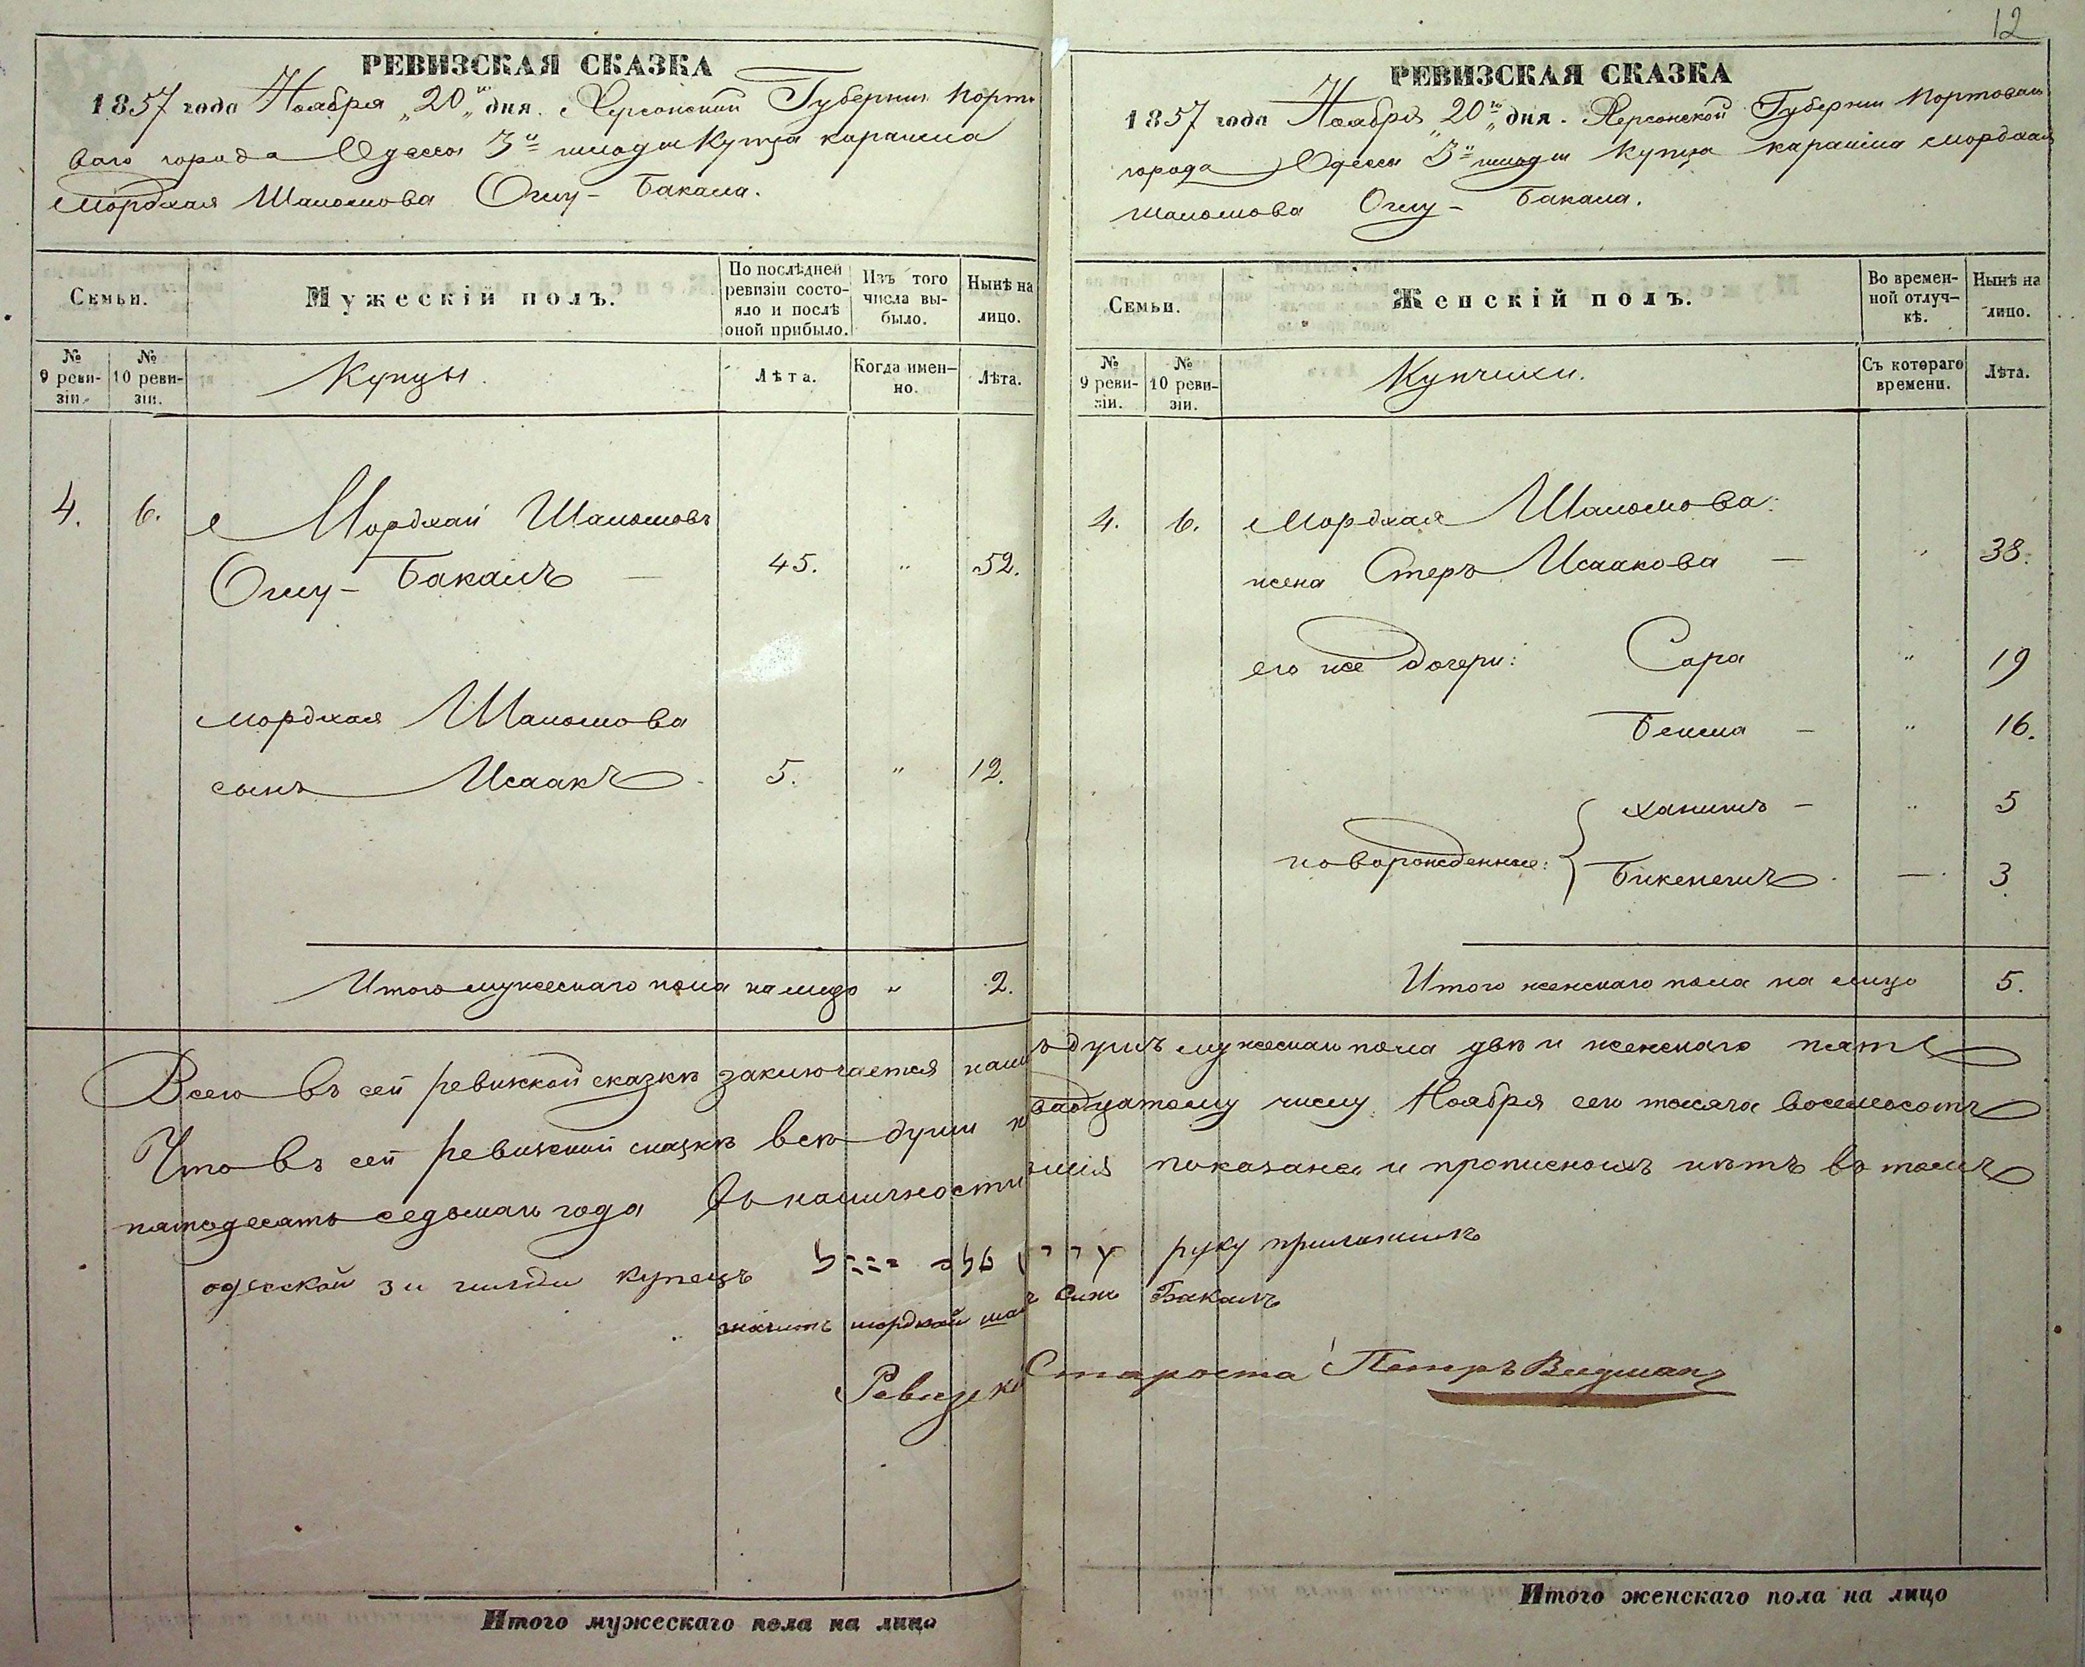 12
РЕВИЗСКАЯ СКАЗКА
1857 года Ноября „20го„ дня. Херсонской Губернии порто-
ваго города Одессы 3й гильдии Купца караима
Мордхая Шаломова Оглу- Бакала.
Семьи.
Мужескій полъ.
По послѣдней ревизіи состояло и послѣ оной прибыло.
Изъ того числа выбыло.
Нынѣ на лицо.
№ 9 ревизіи.
№ 10 ревизіи.
Купцы.
Лѣта.
Когда именно.
Лѣта.
4. 6. Мордхай Шаломовъ
Оглу- Бакалъ — 45. „ 52.
Мордхая Шаломова
сынъ Исаакъ 5. „ 12.
Итого мужескаго пола на лицо „ 2.
РЕВИЗСКАЯ СКАЗКА
1857 года Ноября „20го„ дня. Херсонской Губернии Портоваго
города Одессы 3й гильдии Купца караима Мордхая
Шаломова Оглу- Бакала.
Семьи.
Женскій полъ.
Во временной отлучкѣ.
Нынѣ на лицо.
№ 9 ревизіи.
№ 10 ревизіи.
Купчихи.
Съ котораго времени.
Лѣта.
4. 6. Мордхая Шаломова:
жена Стеръ Исаакова — „ 38.
его же дочери: Сара „ 19
Беима — „ 16.
новорожденные: { ханышъ — „ 5
Бикенешъ. — 3
Итого женскаго пола на лицо 5.
Всего въ сей ревизской сказкѣ заключается налицо душъ мужескаго пола двѣ и женскаго пять
Что въ сей ревизской сказкѣ всѣ души къ двадцатому числу Ноября сего тысяча восемьсотъ
пятьдесятъ седьмаго года въ наличности показаны и прописныхъ нѣтъ въ томъ
одесской 3й гильди купецъ руку приложилъ
значитъ мордхай Бакалъ
Староста Петръ Видман
Итого мужескаго пола на лицо
Итого женскаго пола на лицо